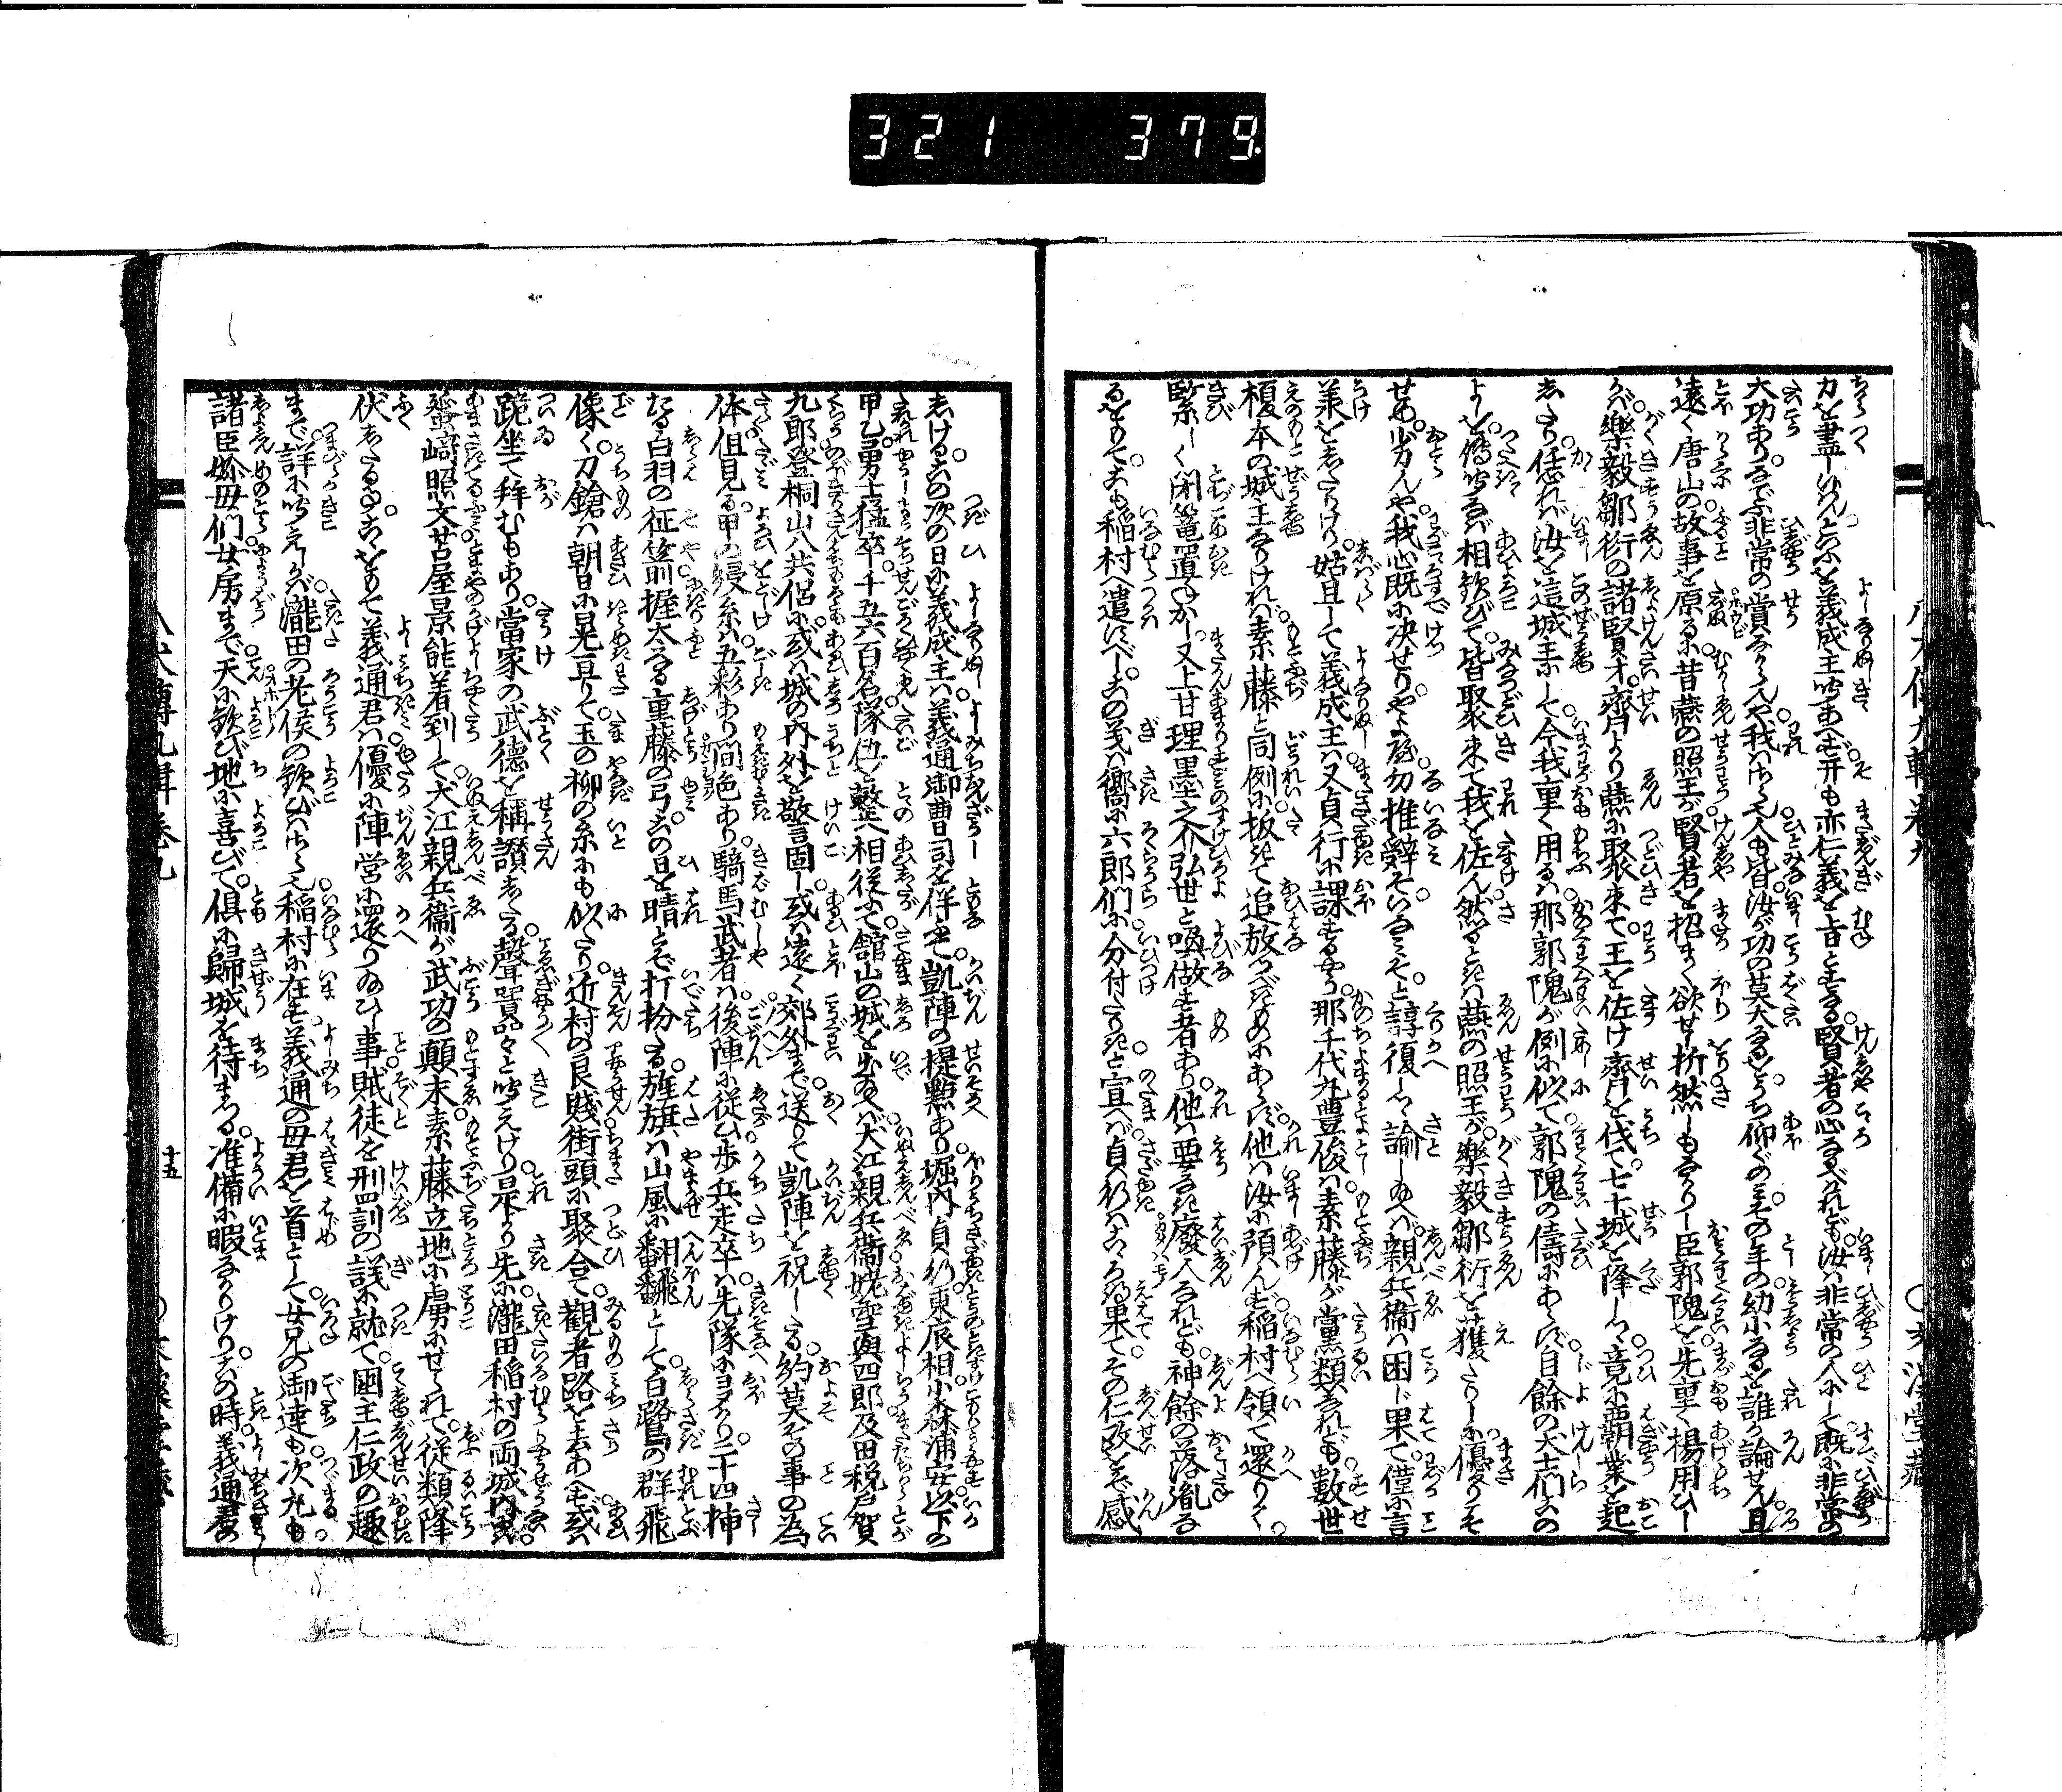 321 379
力を盡しけんといふを義成王听あへず开も亦仁義を旨とする賢者の心なるべけれども汝は非常の人にして既に非常の
大功あり
なでふ非常の賞なからんや我はさら也人も皆汝が功の莫大なるをうち仰ぐのみその年の幼小なるを誰か論せん且
遠く唐山の故事を原るに昔燕の照王が賢者を招まく欲せし折然しもなかりし臣郭隗を先重く揚用ひし
かば樂毅鄒衍の諸賢才齊より燕に聚來て王を佐け齊を伐て七十城を降しゝ竟に覇業を起
したり恁れば汝を這城主にして今我重く用るは那郭隗が例に似て郭隗の儔にあらず自餘の犬士們この
よしを傳听かば相歡びて皆聚來て我を佐ん然るときは燕の照王が樂毅鄒衍を獲たりしに優りこそ
せめ劣らんや我心既に决せりやよ喃勿推辭そいなみそと諄復しく諭し給へば親兵衛は困じ果て僅に言
承をしたりけり姑且して義成主は又貞行に課するやう那千代丸豊俊は素藤が黨類なれども數世
榎本の城主なりければ素藤と同例に扱きて追放つべきものにあらず他は汝に預んず稲村へ領て還りなく
緊しく閉篭置ねかし又上甘理墨之介弘世と喚做す者あり他は要なき癈人なれども神餘の落胤な
るをもてこも稲村へ遣すべしこの義は嚮に六郎們に分付たりきと宣へば貞行はこゝろ得果てその仁政をぞ感
しけるこの次の日に義成主は義通御曹司を伴ふて凱陣の提點あり堀内貞行東辰相小森浦安以下の
甲乙勇士猛卒一千五六百名隊伍を整へ相從ふて館山の城を出給へば犬江親兵衛姥雪與四郎及田税戸賀
九郎登桐山八共侶に或は城の内外を敬言固し或は遠く郊外まで送りて凱陣を祝したる約莫その事の為
体但見る甲の縵糸は五彩あり間色あり騎馬武者は後陣に從ひ歩兵走卒は先隊にヨヲり二十四挿
たる白羽の征箭握太なる重藤の弓この日を晴とぞ打扮たる旌旗は山風に翩翻として白鷺の群飛
像く刀鎗は朝日に晃亘りて玉の柳の糸にも似たり近村の良賤街頭に聚合て觀者路を去あへず或は
跪坐て拜むもあり當家の武德を稱讃したる聲囂々と听えけり是より先に瀧田稲村の両城内には
蜑﨑照文苫屋景能着到して犬江親兵衛が武功の顛末素藤立地に虜にせられて從類降
伏したる事これをもて義通君は優に陣営に還り給ひ事賊徒を刑罰の議に就て國主仁政の趣
まで詳に听えしかば瀧田の老侯の歡びはさら也稲村に在す義通の母君を首として女兄の御達も次丸も
諸臣媬母們女房まで天に歡び地に喜びて倶に歸城を待まつる准備に暇なかりけりこの時義通君の
八犬傳九輯卷九
十五